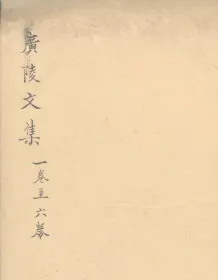 廣陵文集
一卷至六卷